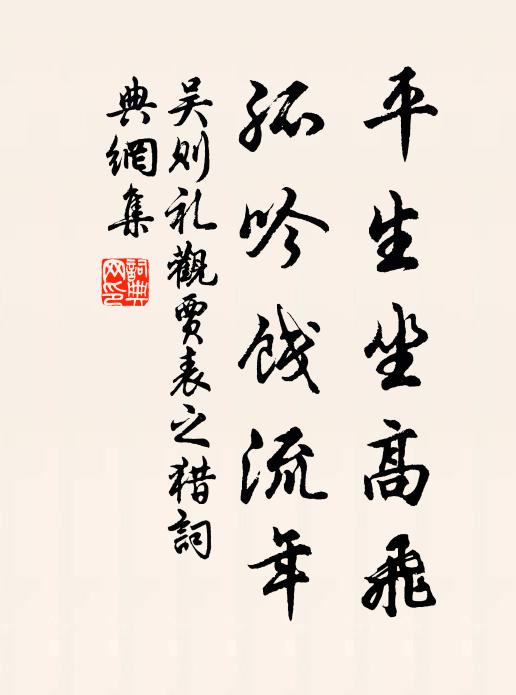 平生坐高飛
孤吟餞流年
吴則礼觀賈表之猎詞
典網集
詞典网印